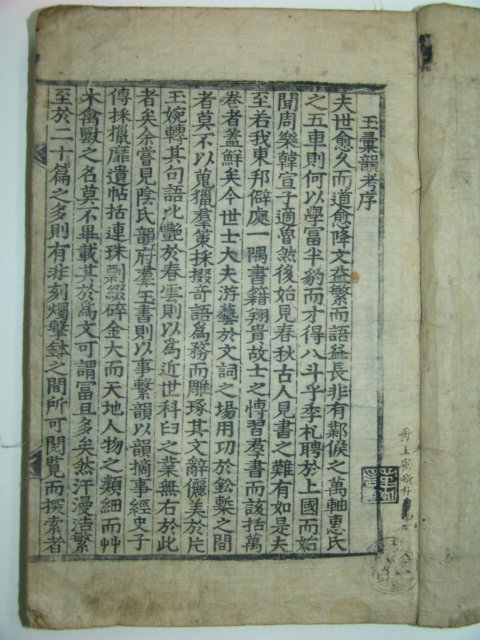 玉彙韻考序
夫世愈久而道愈降文益繁而語益長非有鄴侯之萬軸惠氏
之五車則何以學富半豹而才得八斗乎李札聘於上國而始
聞周樂韓宣子適魯然後始見春秋古人見書之難有如是夫
至若我東邦僻處一隅書籍翔貴故士之博習羣書而該括萬
卷者蓋鮮矣今世士大夫游藝於文詞之場用功於鈆槧之間
者莫不以蒐獵羣策採掇奇語爲務而雕琢其文辭儷美於片
玉婉轉其句語比艶於春雲則以爲近世科臼之業無右於此
者矣余嘗見陰氏韻府羣玉書則以事繫韻以韻摘事經史子
傳採獵靡遺帖括連珠剽綴碎金大而天地人物之類細而艸
木禽獸之名莫不畢載其於爲文可謂富且多矣然汗漫浩繁
至於二十篇之多則有非刻燭擊鉢之間所可閱覽而探索者